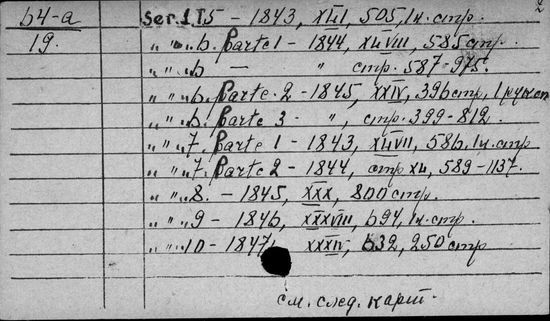 64-a
19.
2
Ser. I T5 - 1843, XLI, 505, 1 н. стр.
" " " 6. Parte 1 - 1844, XLVIII, 585 стр.
" " " 6 - " стр. 587-975.
" " " 6. Parte. 2 - 1845, XXIV, 396 стр,
" " " 6. Parte 3 - ", стр. 399-812.
" " " 7. Parte 1 - 1843, XLVII, 586, 1 н. стр.
" " " 7. Parte 2 - 1844, стр XL, 589-1137.
" " " 8. - 1845, XXX, 800 стр.
" " " 9 - 1846, XXXVIII, 694, 1 н. стр.
" " " 10 - 1847, XXXIV, 632, 250 стр
см. след. карт.